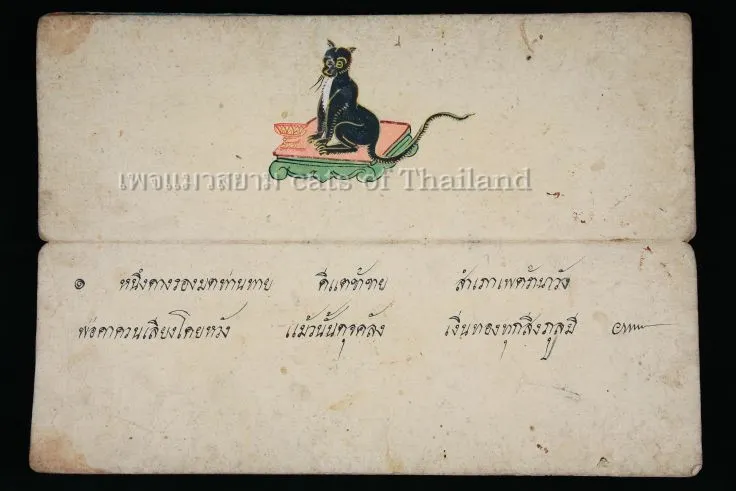 เพจแมวสยาม cats of Thailand
๏ หนึ่งคางรองมดท่านทาย ดีแตข้าขาย สำเภาเพตรานาวัง
พ่อคาควนเลี้ยงโดยหวัง แม้วนั้นดุจคลัง เงีนทองทุกสิ่งภูลมี